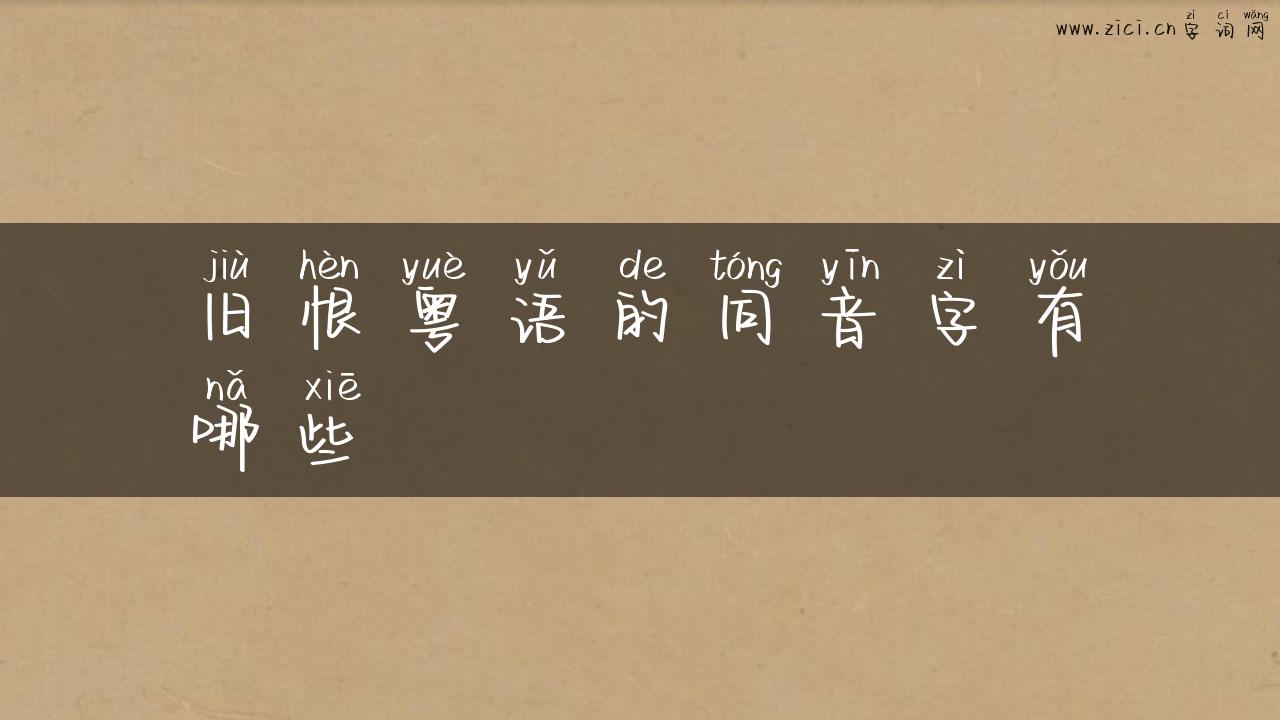 zì cí wǎng
www.zici.cn字词网
jiù hèn yuè yǔ de tóng yīn zì yǒu
旧恨粤语的同音字有
nǎ xiē
哪些